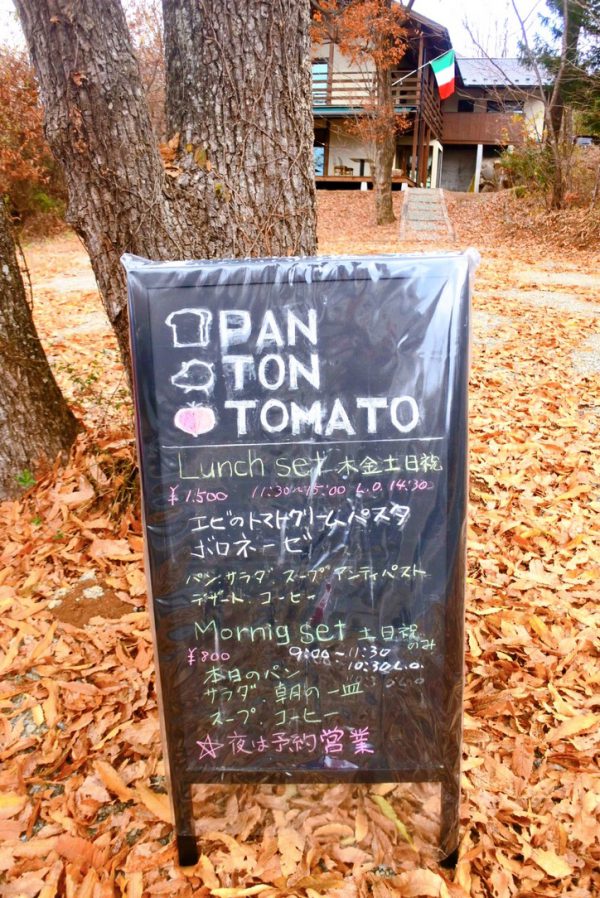 PAN
TON
TOMATO
Lunch set 木金土日祝
¥1.500 11:30〜15:00 L.O. 14:30
エビのトマトクリームパスタ
ボロネーゼ
パン.サラダ.スープ.アンティパスト
デザート.コーヒー
Mornig set 土日祝のみ
¥800 9:00〜11:30
10:30 L.O.
本日のパン
サラダ.朝の一皿
スープ.コーヒー
☆夜は予約営業